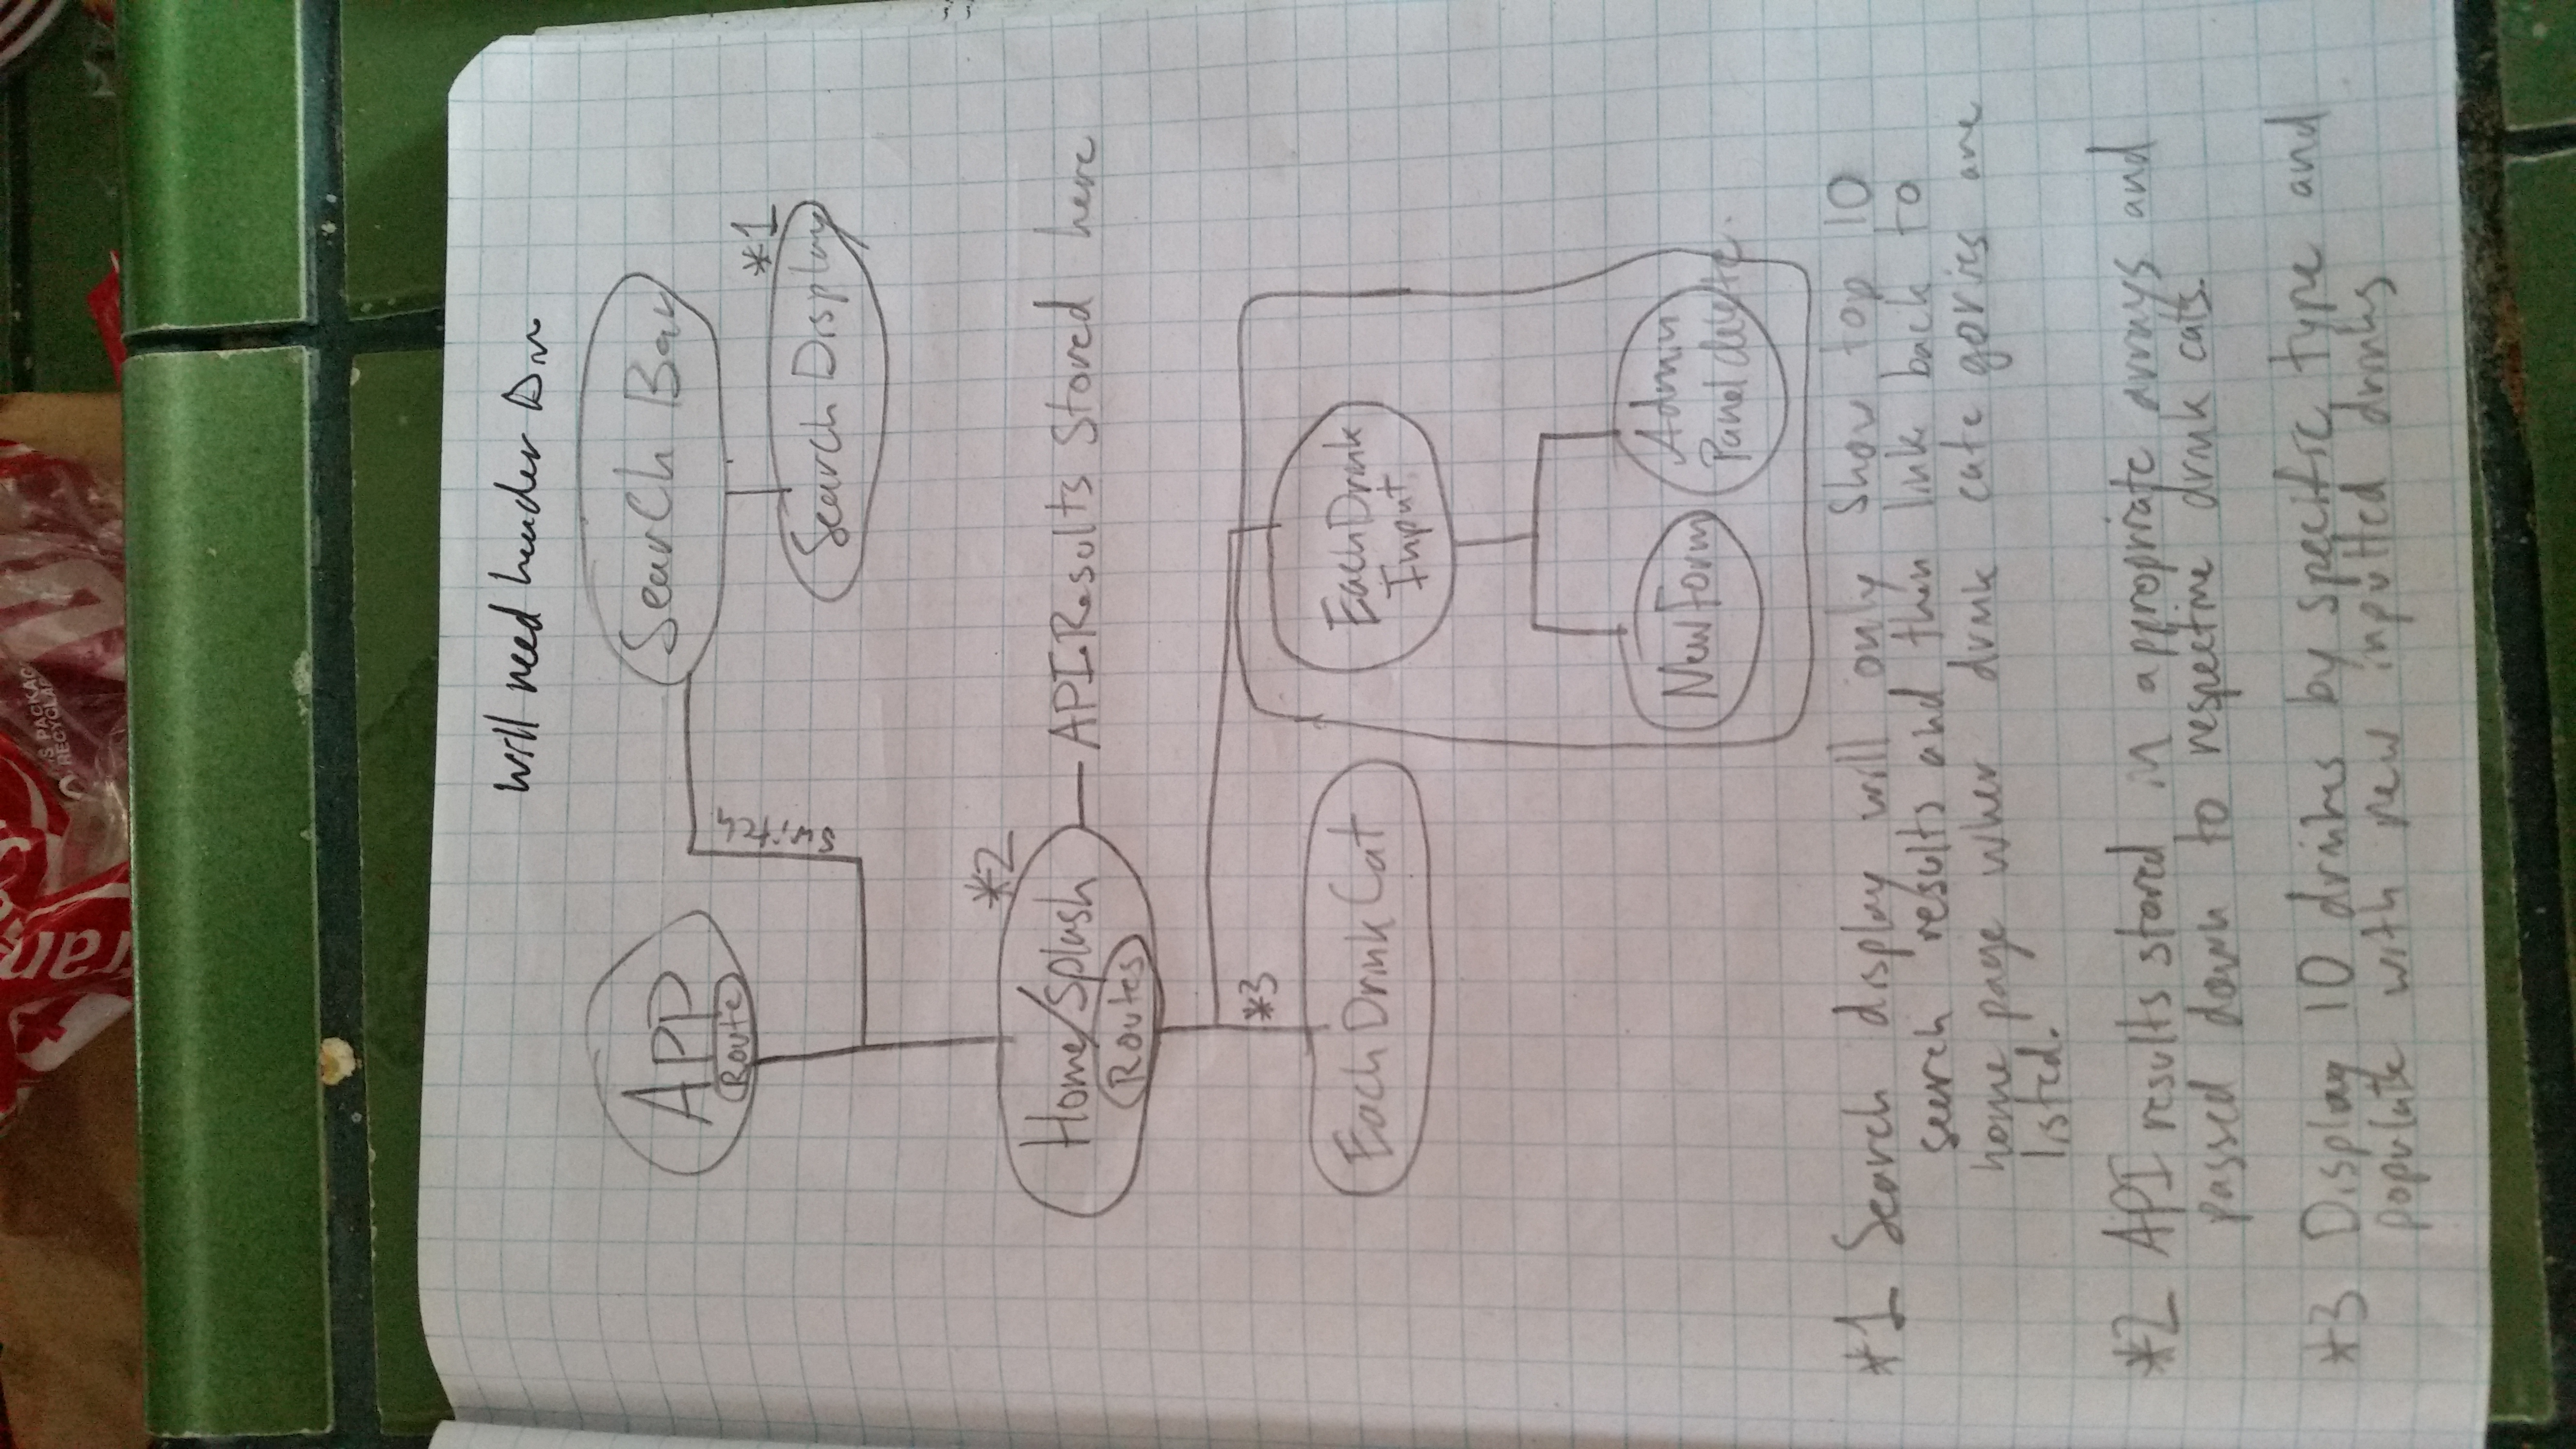 IS PACKAG
RECYCLAB
will need header Div
APP
Route
Switch
Search Bar
*1
Search Display
*2
Home/Splash
Routes
API Results Stored here
*3
Each Drink Cat
Each Drink
Input
New Form
Admin
Panel delete.
*1 Search display will only show top 10
search results and then link back to
home page wher drink categories are
listed.
*2 API results stored in appropriate arrays and
passed down to respective drink cats.
*3 Display 10 drinks by specific type and
populate with new inputted drinks